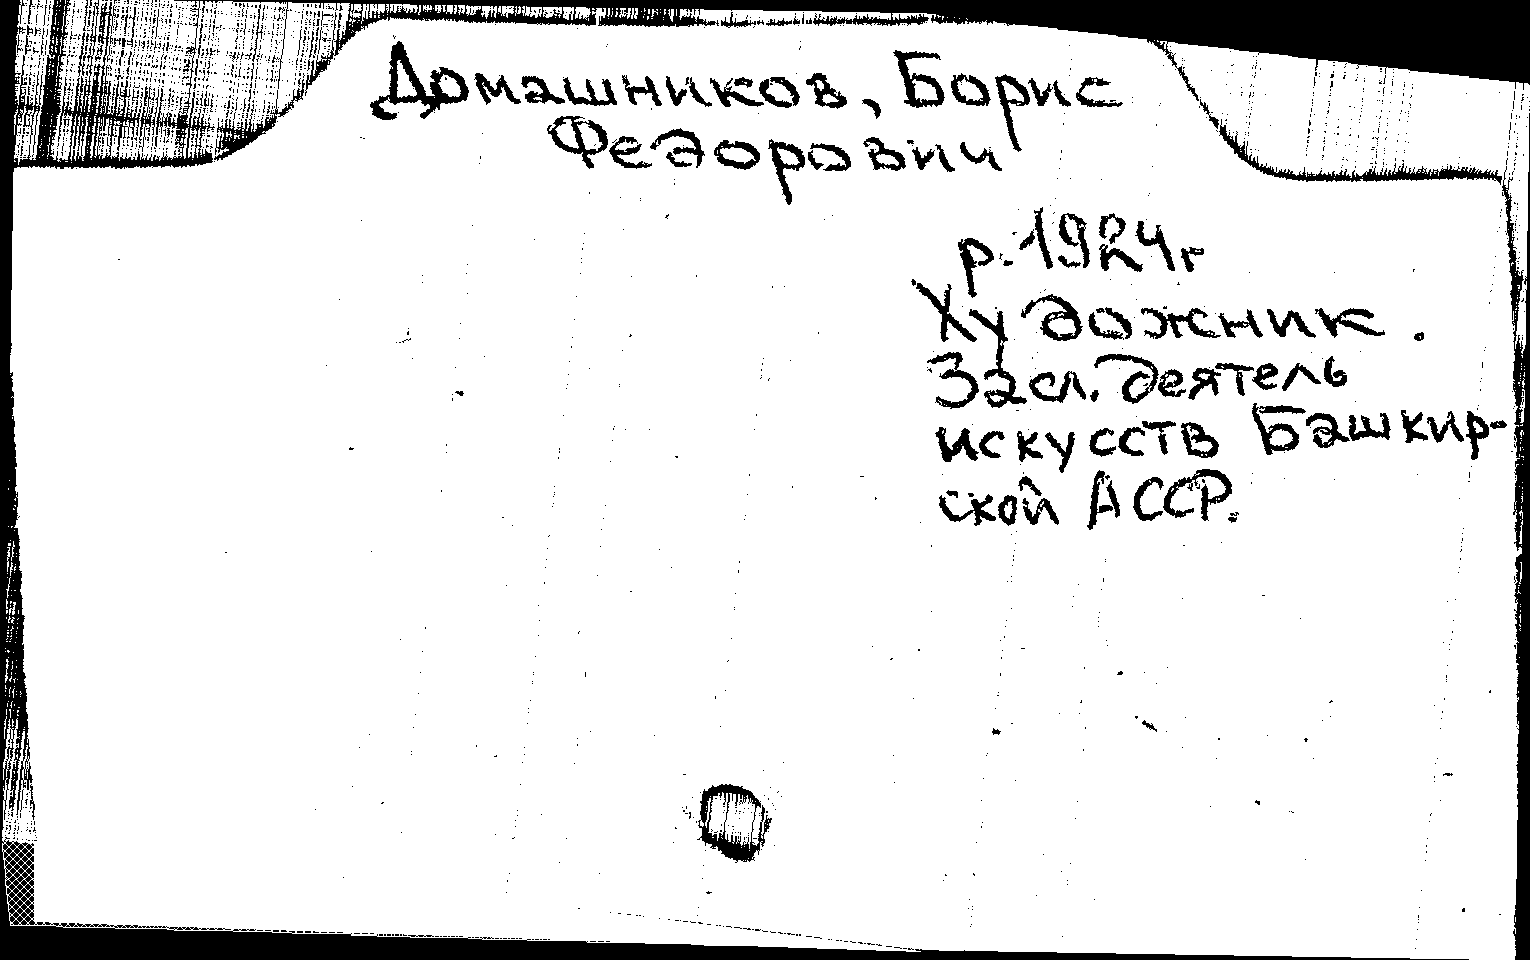 Домашников, Борис
Федорович
р. 1924г
Художник.
Засл. деятель
искусств Башкир-
ской АССР.